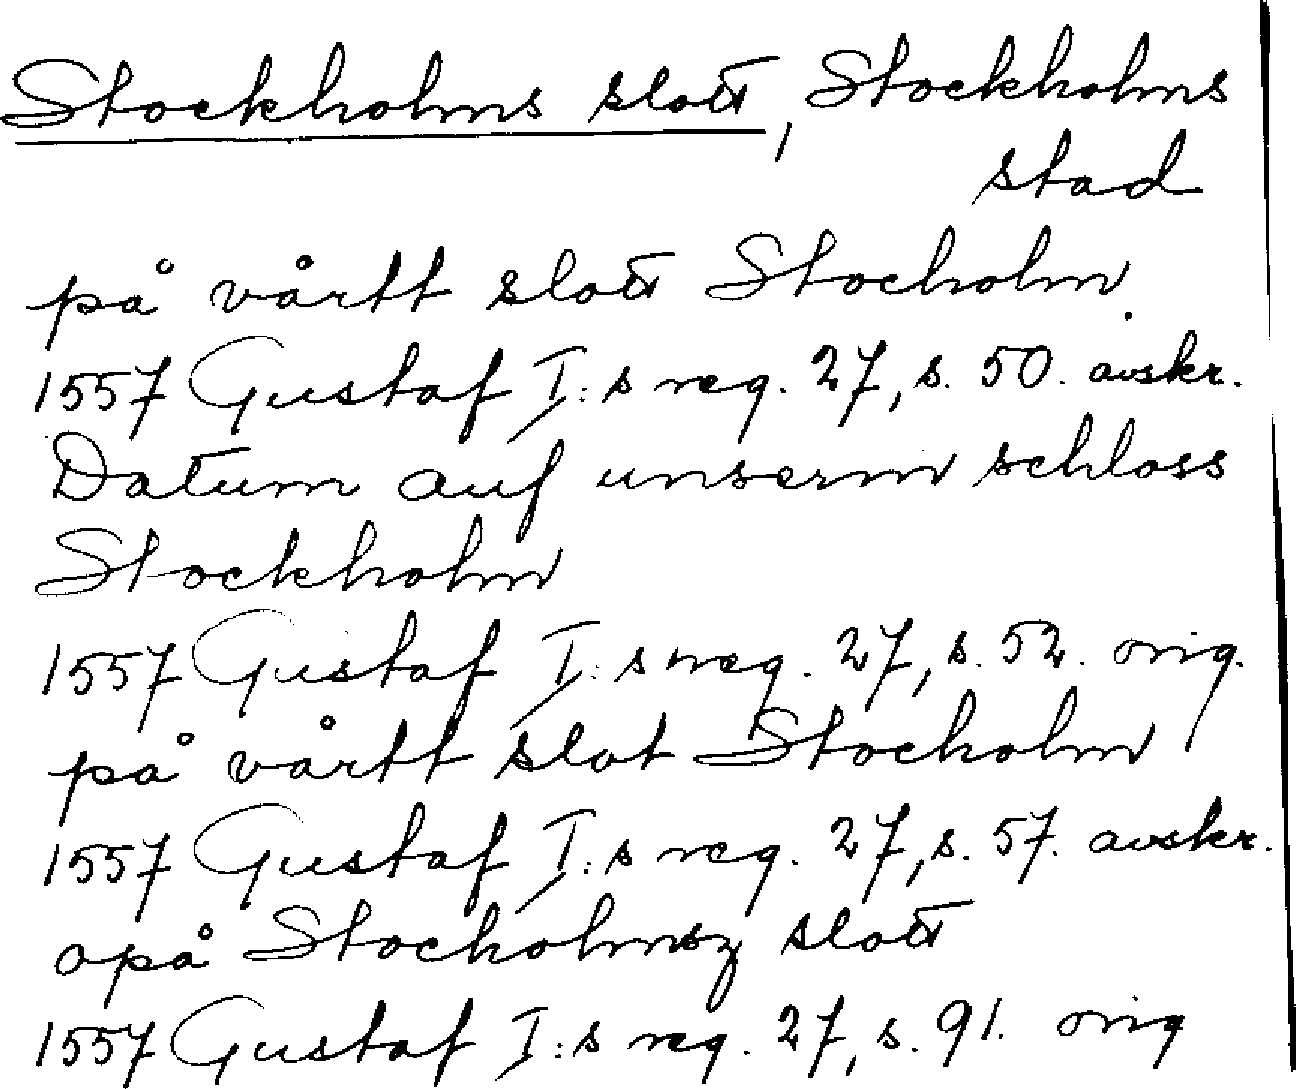 Stockholms slott, Stockholms
stad
på vårtt slott Stocholm.
1557 Gustaf I:s reg. 27, s. 50. avskr.
Datum auf unserm schloss
Stockholm
1557 Gustaf I:s reg. 27, s. 52. orig.
på vårtt slot Stocholm
1557 Gustaf I:s reg. 27, s. 57. avskr.
opå Stocholmsz slott
1557 Gustaf I:s reg. 27, s. 91. orig